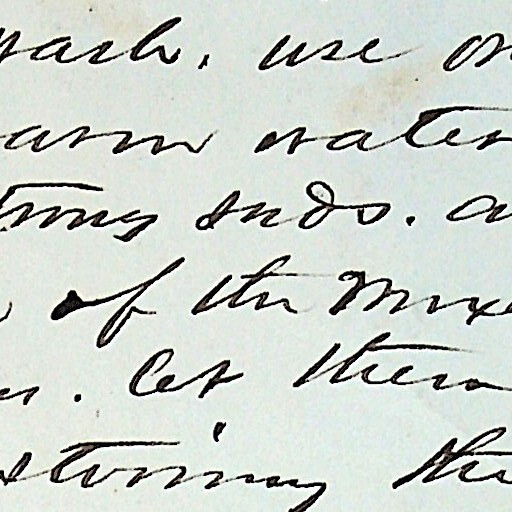 wash, use on
warm water
trong suds. a
of the Mixt
. Let them
stirring the